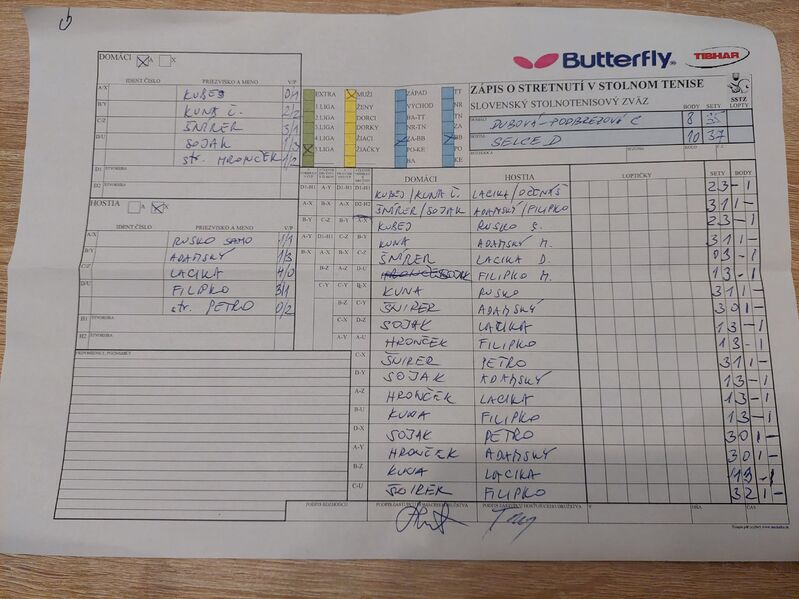 DOMÁCI A X
Butterfly TIBHAR
ZÁPIS O STRETNUTÍ V STOLNOM TENISE
SLOVENSKÝ STOLNOTENISOVÝ ZVÄZ
SSTZ
BODY SETY LOPTY
DUBOVÁ-PODBREZOVÁ C 8 35
SELCE D 10 37
IDENT ČÍSLO PRIEZVISKO A MENO V/P
A/X KUBEJ 0/1
B/Y KUNA Ľ. 2/2
C/Z ŠNÍRER 3/1
D/U SOJAK 1/3
str. HRONČEK 1/2
D1 ŠTVORHRA
D2 ŠTVORHRA
EXTRA MUŽI ZÁPAD TT
1.LIGA ŽENY VÝCHOD NR
2.LIGA DORCI BA-TT TN
3.LIGA DORKY NR-TN ZA
4.LIGA ŽIACI ZA-BB BB
5.LIGA ŽIAČKY PO-KE PO
BA KE
HOSTIA A X
IDENT ČÍSLO PRIEZVISKO A MENO V/P
A/X RUSKO SAMO 1/1
B/Y ADAMSKÝ 1/3
C/Z LACIKA 4/0
D/U FILIPKO 3/1
str. PETRO 0/2
H1 ŠTVORHRA
H2 ŠTVORHRA
PRIPOMIENKY, POZNÁMKY
DOMÁCI HOSTIA LOPTIČKY SETY BODY
D1-H1 KUBEJ/KUNA Ľ. LACIKA/OČENÁŠ 2 3 - 1
D2-H2 ŠNÍRER/SOJAK ADAMSKÝ/FILIPKO 3 1 1 -
A-X KUBEJ RUSKO S. 2 3 - 1
KUNA ADAMSKÝ M. 3 1 1 -
ŠNÍRER LACIKA D. 0 3 - 1
SOJAK FILIPKO M. 1 3 - 1
KUNA RUSKO 3 1 1 -
ŠNIRER ADAMSKÝ 3 0 1 -
SOJAK LACIKA 1 3 - 1
HRONČEK FILIPKO 1 3 - 1
C-X ŠNIRER PETRO 3 1 1 -
D-Y SOJAK ADAMSKÝ 1 3 - 1
A-Z HRONČEK LACIKA 1 3 - 1
B-U KUNA FILIPKO 1 3 - 1
D-X SOJAK PETRO 3 0 1 -
A-Y HRONČEK ADAMSKÝ 3 0 1 -
B-Z KUNA LACIKA 1 3 - 1
C-U ŠNIRER FILIPKO 3 2 1 -
PODPIS ROZHODCU PODPIS ZÁSTUPCU DOMÁCEHO DRUŽSTVA PODPIS ZÁSTUPCU HOSŤUJÚCEHO DRUŽSTVA V DŇA ČAS